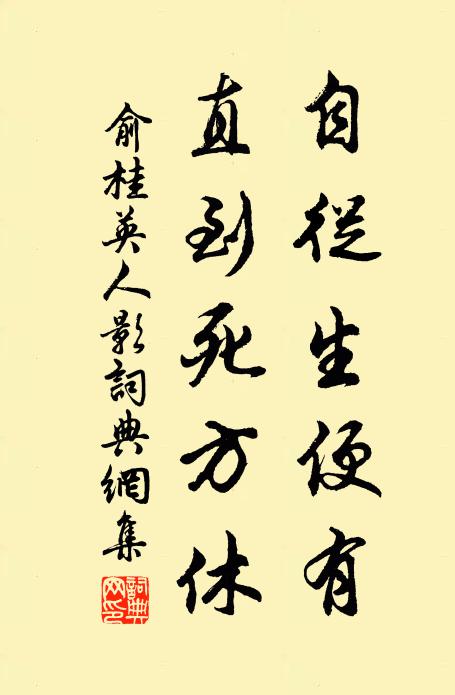 自從生便有
直到死方休
俞桂英人影詞典網集
詞典網印